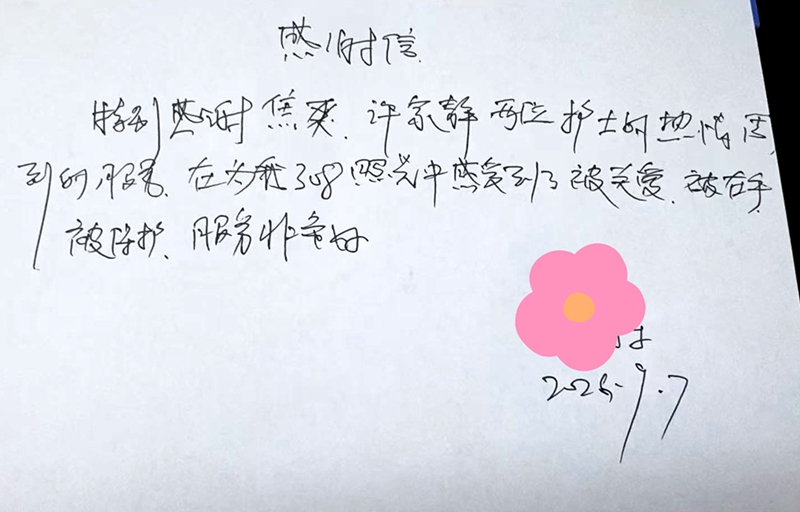 感谢信
特别感谢焦爽、许家静两位护士的热情周
到的服务、在为我308照光中感受到了被关爱、被在乎
被保护、服务非常好
2025.9.7